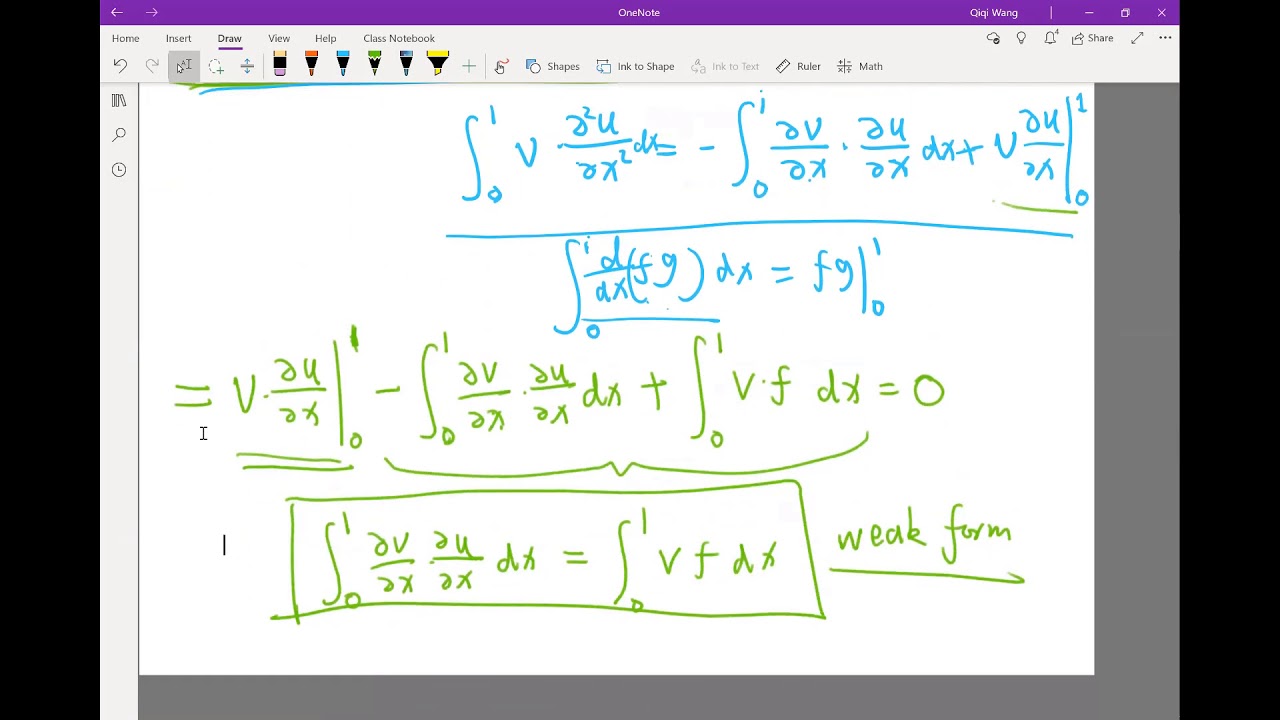 OneNote
Qiqi Wang
Home Insert Draw View Help Class Notebook
Share
Shapes Ink to Shape Ink to Text Ruler Math
∫₀¹ v · ∂²u/∂x² dx = - ∫₀¹ ∂v/∂x · ∂u/∂x dx + v ∂u/∂x |₀¹
∫₀¹ d/dx (fg) dx = fg |₀¹
= v · ∂u/∂x |₀¹ - ∫₀¹ ∂v/∂x · ∂u/∂x dx + ∫₀¹ v · f dx = 0
∫₀¹ ∂v/∂x · ∂u/∂x dx = ∫₀¹ v f dx weak form